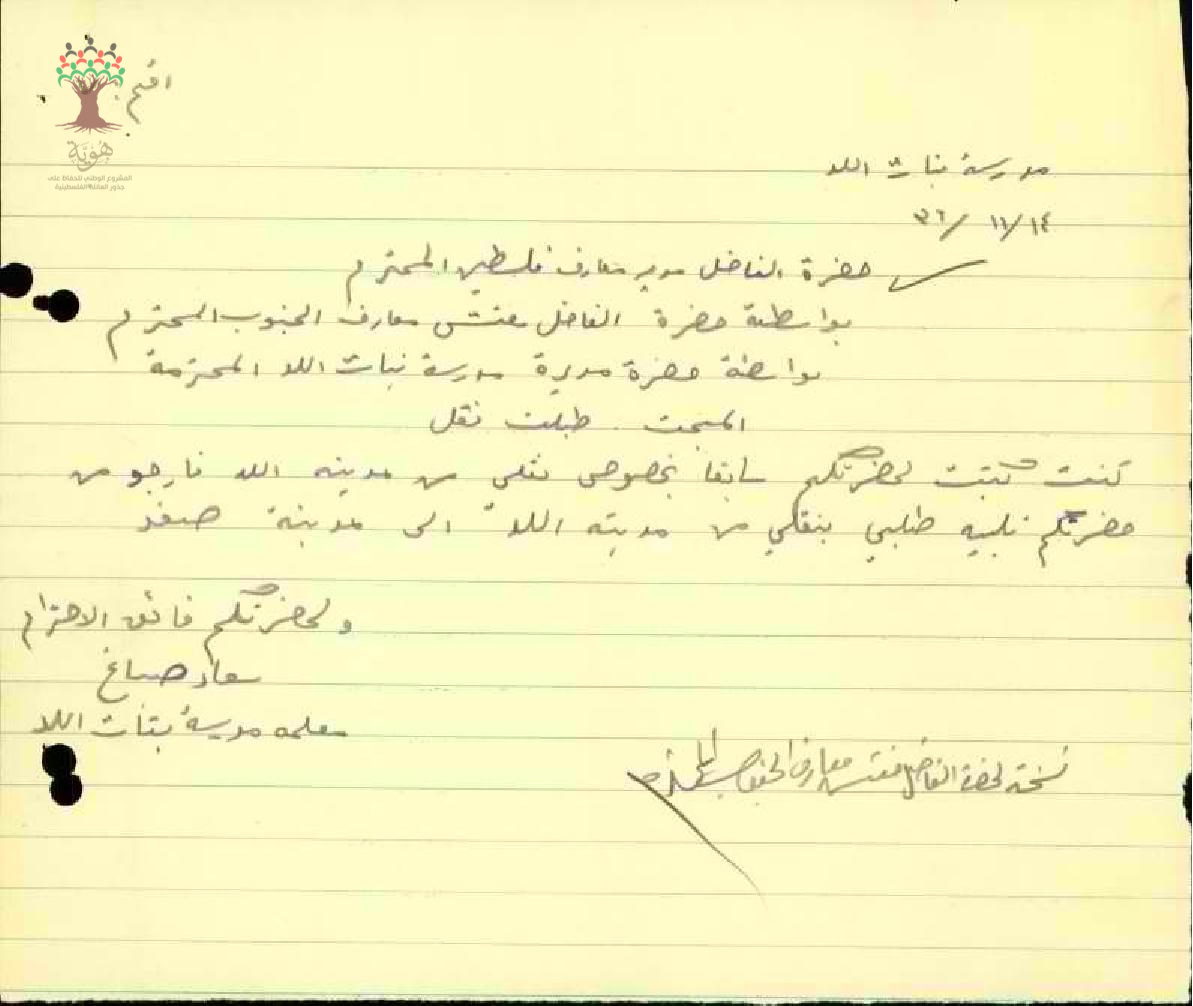 هُوِيَّة
المشروع الوطني للحفاظ على
جذور العائلة الفلسطينية
مدرسة بنات اللد
١٤/١١/٣٦
حضرة الفاضل مدير معارف فلسطين المحترم
بواسطة حضرة الفاضل مفتش معارف الجنوب المحترم
بواسطة حضرة مديرة مدرسة بنات اللد المحترمة
المبحث . طلب نقل
كنت كتبت لحضرتكم سابقا بخصوص نقلي من مدينه اللد فارجو من
حضرتكم تلبيه طلبي بنقلي من مدينه اللد الى مدينة صفد
ولحضرتكم فائق الاحترام
سعاد صباغ
معلمه مدرسة بنات اللد
نسخة لحضرة الفاضل مفتش معارف الجنوب